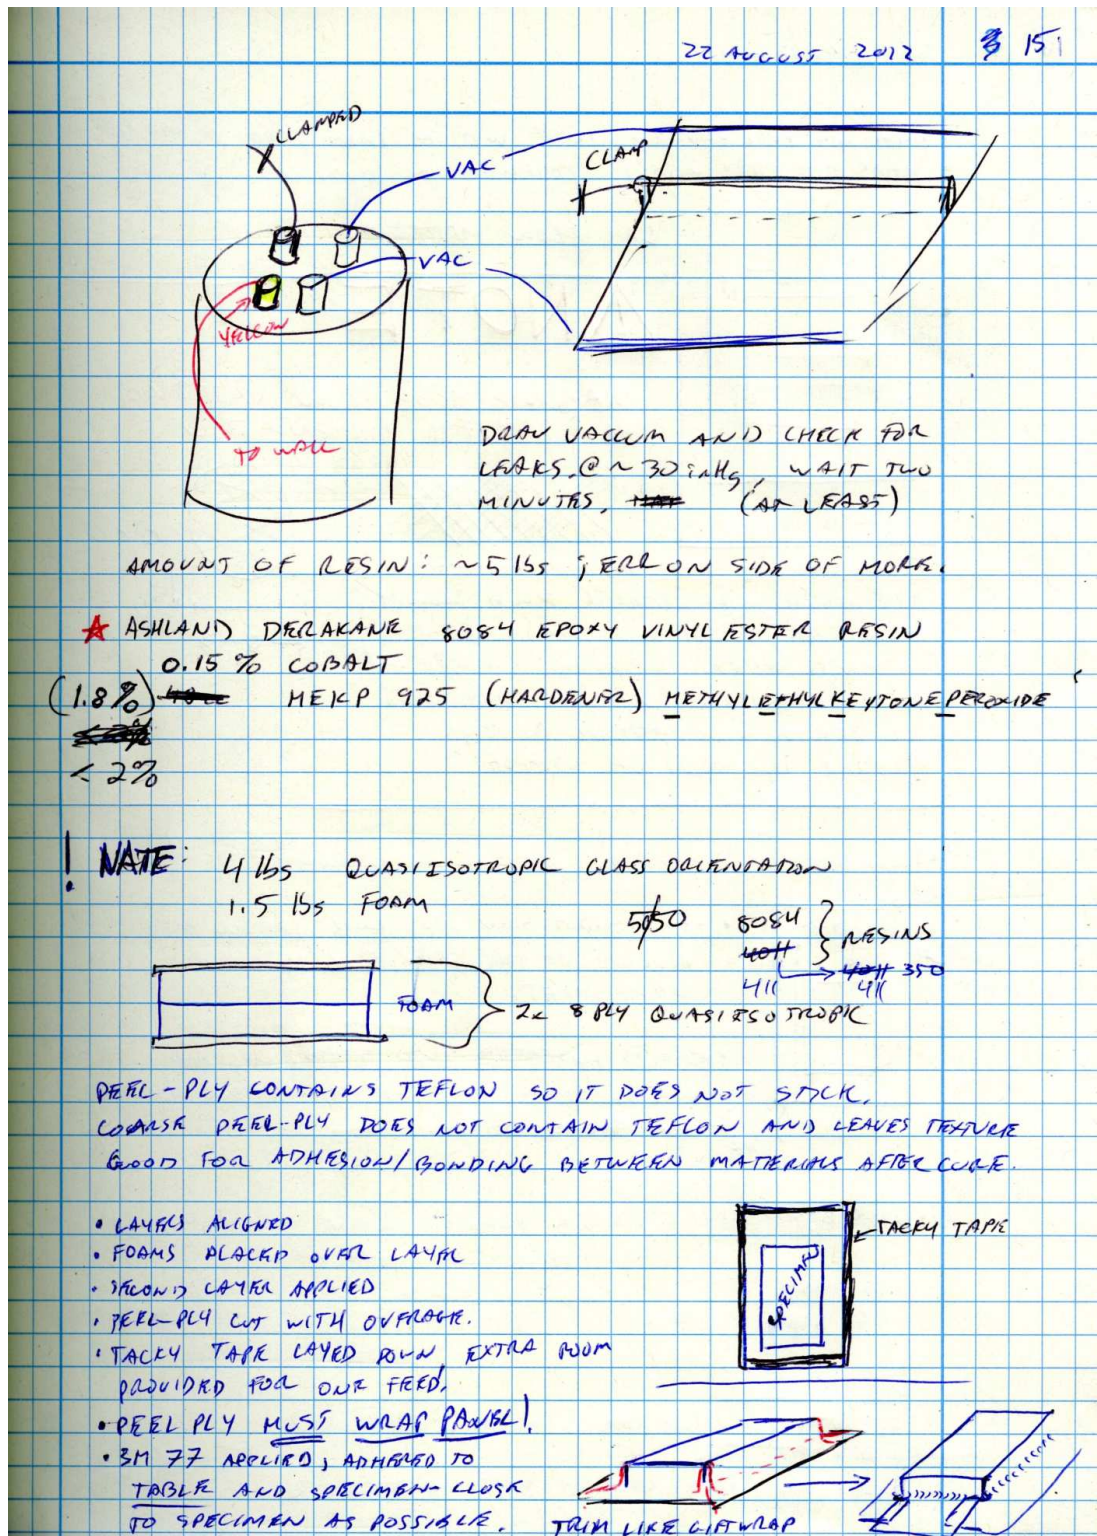 22 AUGUST 2012 15
CLAMPED
VAC
CLAMP
VAC
YELLOW
TO WALL
DRAW VACCUM AND CHECK FOR
LEAKS. @ ~ 30 inHg, WAIT TWO
MINUTES, (AT LEAST)
AMOUNT OF RESIN: ~5 lbs ; ERR ON SIDE OF MORE.
★ ASHLAND DERAKANE 8084 EPOXY VINYL ESTER RESIN
0.15 % COBALT
(1.8%) MEKP 925 (HARDENER) METHYLETHYLKEYTONEPEROXIDE
< 2%
! NATE: 4 lbs QUASIISOTROPIC GLASS ORIENTATION
1.5 lbs FOAM
50/50 8084
4011 } RESINS
411 → 4011 350
411
FOAM } 2x 8 PLY QUASIISOTROPIC
PEEL-PLY CONTAINS TEFLON SO IT DOES NOT STICK.
COARSE PEEL-PLY DOES NOT CONTAIN TEFLON AND LEAVES TEXTURE
GOOD FOR ADHESION/BONDING BETWEEN MATERIALS AFTER CURE.
• LAYERS ALIGNED
• FOAMS PLACED OVER LAYER
• SECOND LAYER APPLIED
• PEEL-PLY CUT WITH OVERAGE.
• TACKY TAPE LAYED DOWN, EXTRA ROOM
PROVIDED FOR ONE FEED.
• PEEL PLY MUST WRAP PANEL!
• 3M 77 APPLIED, ADHERED TO
TABLE AND SPECIMEN-CLOSE
TO SPECIMEN AS POSSIBLE.
TACKY TAPE
SPECIMEN
TRIM LIKE GIFTWRAP